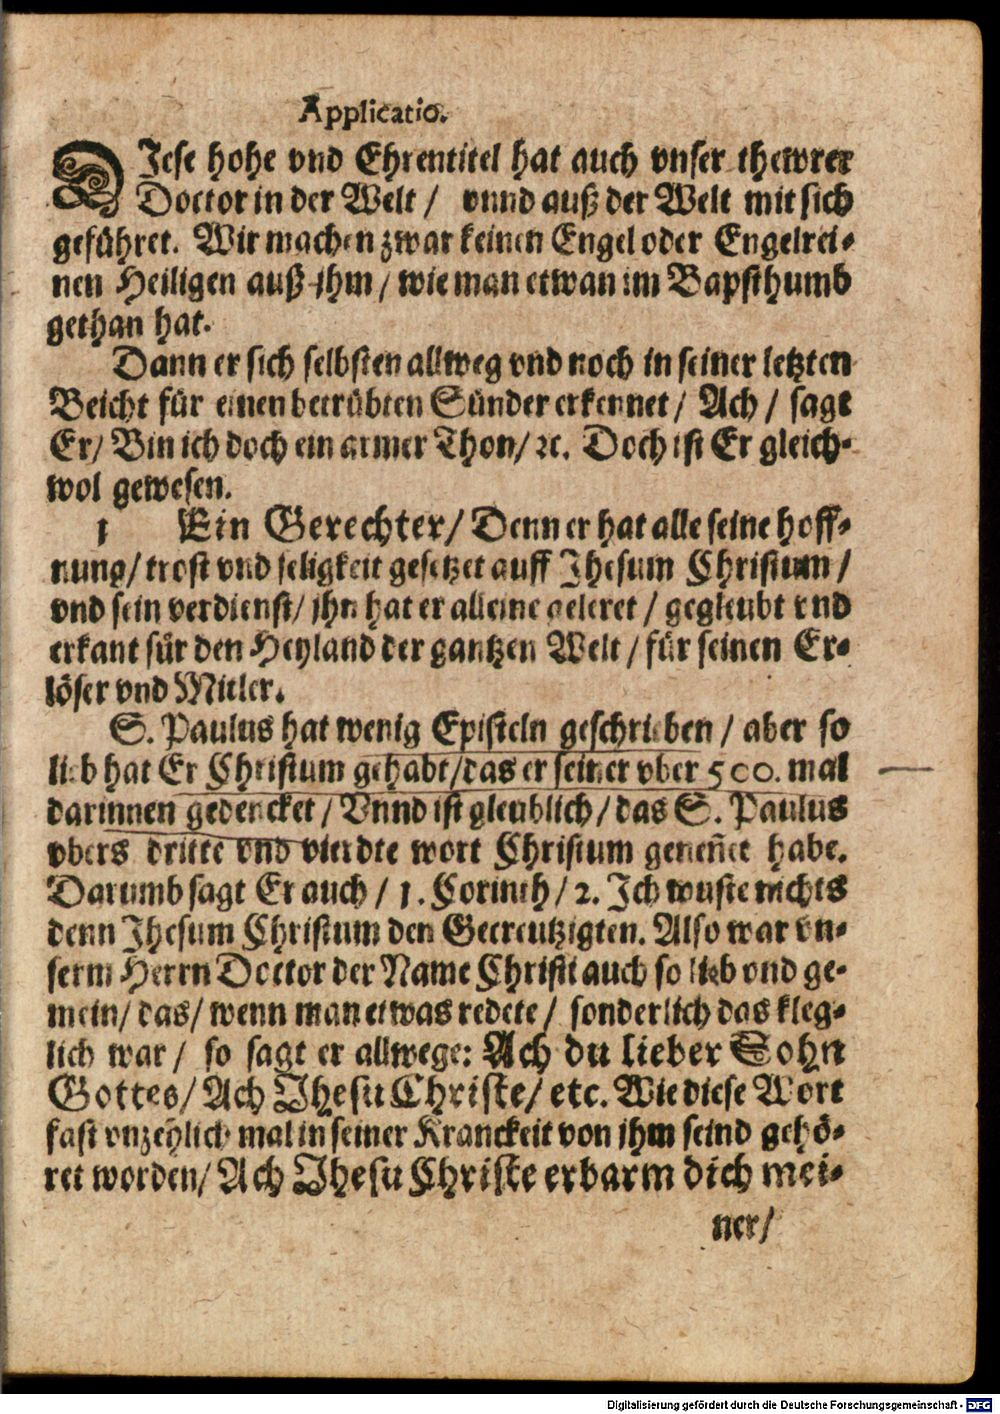 Applicatio.
DIese hohe vnd Ehrentitel hat auch vnser thewrer
Doctor in der Welt / vnnd auß der Welt mit sich
geführet. Wir machen zwar keinen Engel oder Engelrei-
nen Heiligen auß ihm / wie man etwan im Bapsthumb
gethan hat.
Dann er sich selbsten allweg vnd noch in seiner letzten
Beicht für einen betrübten Sünder erkennet / Ach / sagt
Er / Bin ich doch ein armer Thon / ꝛc. Doch ist Er gleich-
wol gewesen.
1 Ein Gerechter / Denn er hat alle seine hoff-
nung / trost vnd seligkeit gesetzet auff Jhesum Christum /
vnd sein verdienst / ihn hat er alleine geleret / gegleubt vnd
erkant für den Heyland der gantzen Welt / für seinen Er-
löser vnd Mitler.
S. Paulus hat wenig Episteln geschrieben / aber so
lieb hat Er Christum gehabt / das er seiner vber 500. mal
darinnen gedencket / Vnnd ist gleublich / das S. Paulus
vbers dritte vnd vierdte wort Christum geneñet habe.
Darumb sagt Er auch / 1. Corinth / 2. Ich wuste nichts
denn Jhesum Christum den Gecreutzigten. Also war vn-
serm Herrn Doctor der Name Christi auch so lieb vnd ge-
mein / das / wenn man etwas redete / sonderlich das kleg-
lich war / so sagt er allwege: Ach du lieber Sohn
Gottes / Ach Jhesu Christe / etc. Wie diese Wort
fast vnzehlich mal in seiner Kranckeit von ihm seind gehö-
ret worden / Ach Jhesu Christe erbarm dich mei-
ner /
Digitalisierung gefördert durch die Deutsche Forschungsgemeinschaft - DFG